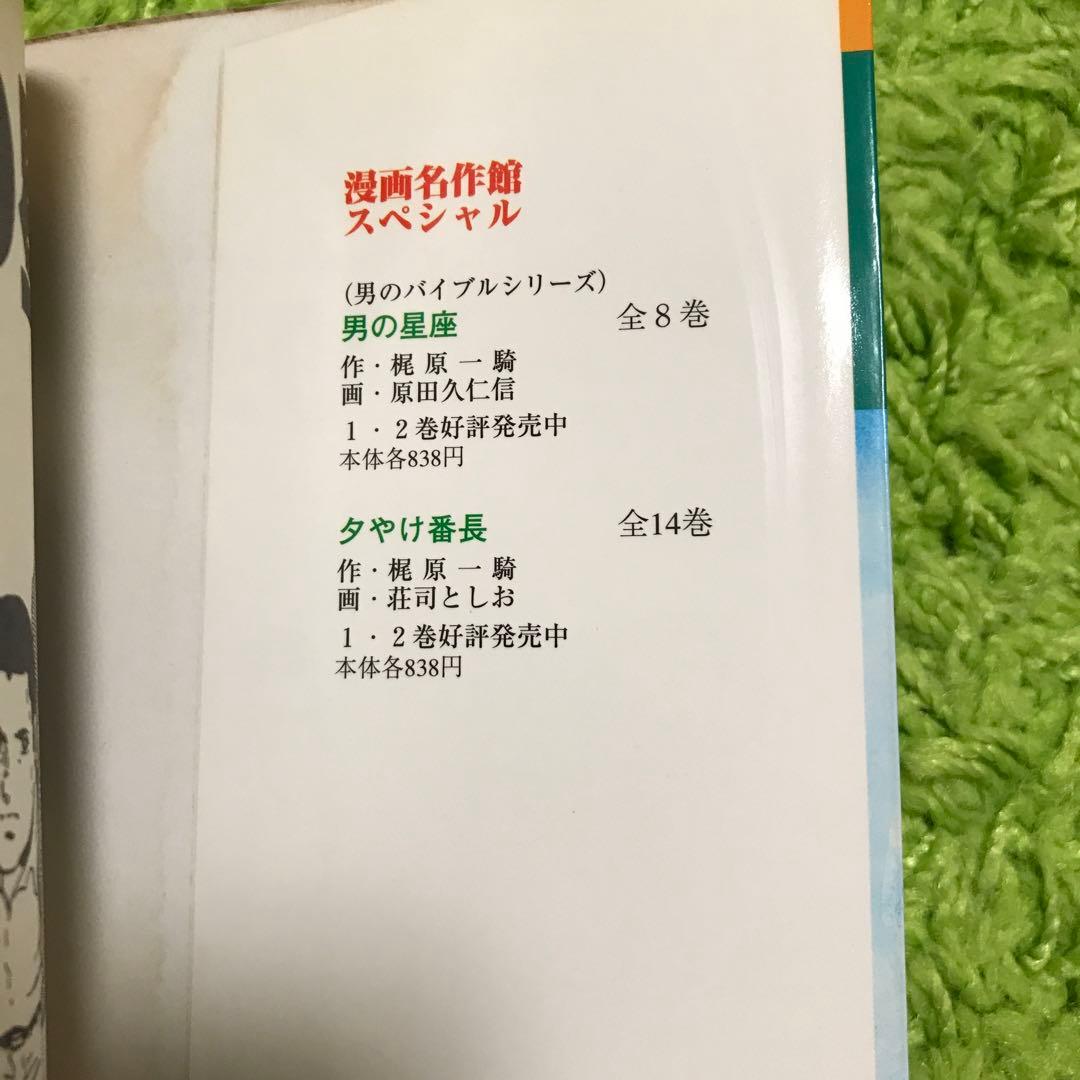 漫画名作館
スペシャル
(男のバイブルシリーズ)
男の星座 全8巻
作・梶原一騎
画・原田久仁信
1・2巻好評発売中
本体各838円
夕やけ番長 全14巻
作・梶原一騎
画・荘司としお
1・2巻好評発売中
本体各838円